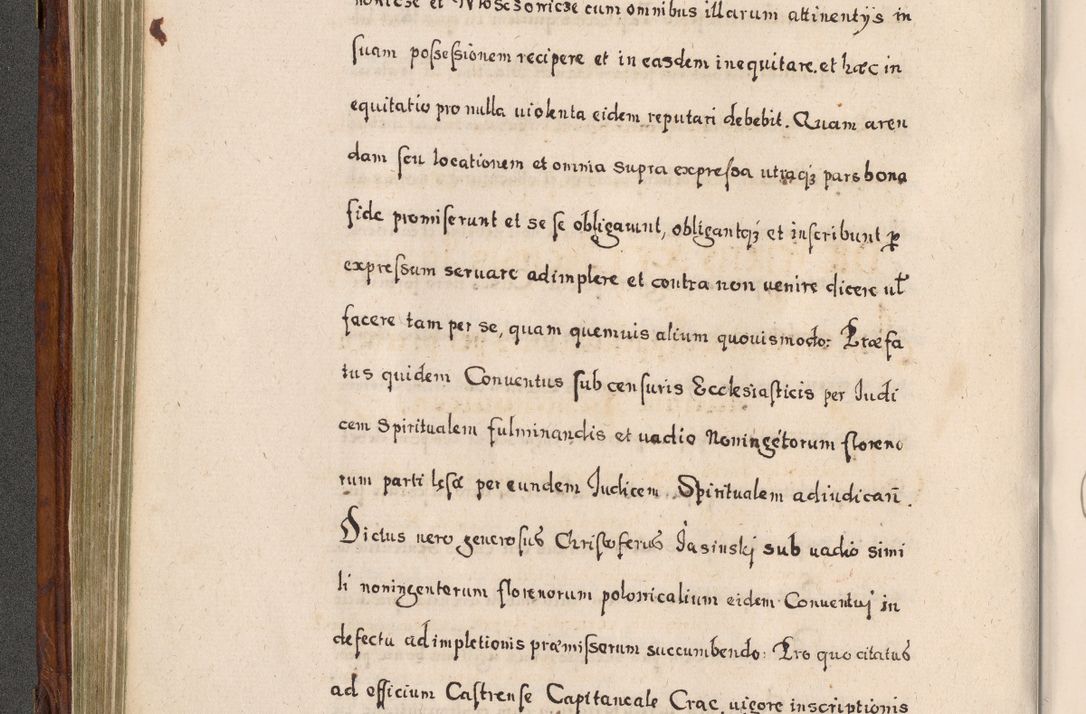 et Moszczonicze cum omnibus illarum attinentijs in
suam possessionem recipere et in easdem inequitare. et hæc in
equitatio pro nulla uiolenta eidem reputari debebit. Quam aren
dam seu locationem et omnia supra expressa utraqꝫ pars bona
fide promiserunt et se se obligarunt, obligantqꝫ et inscribunt ꝑ
expressum seruare adimplere et contra non uenire dicere ul̄
facere tam per se, quam quemuis alium quouismodo: Præfa
tus quidem Conuentus sub censuris Ecclesiasticis per Iudi
cem Spiritualem fulminandis et uadio Noningētorum floreno
rum parti lęsæ per eundem Iudicem Spiritualem adiudican̄.
Dictus uero generosus Christoferus Jasinskj sub uadio simi
li noningentorum florenorum polonicalium eidem Conuentuj in
defectu adimpletionis præmissorum succumbendo: Pro quo citatus
ad officium Castrense Capitaneale Crac. uigore inscriptionis